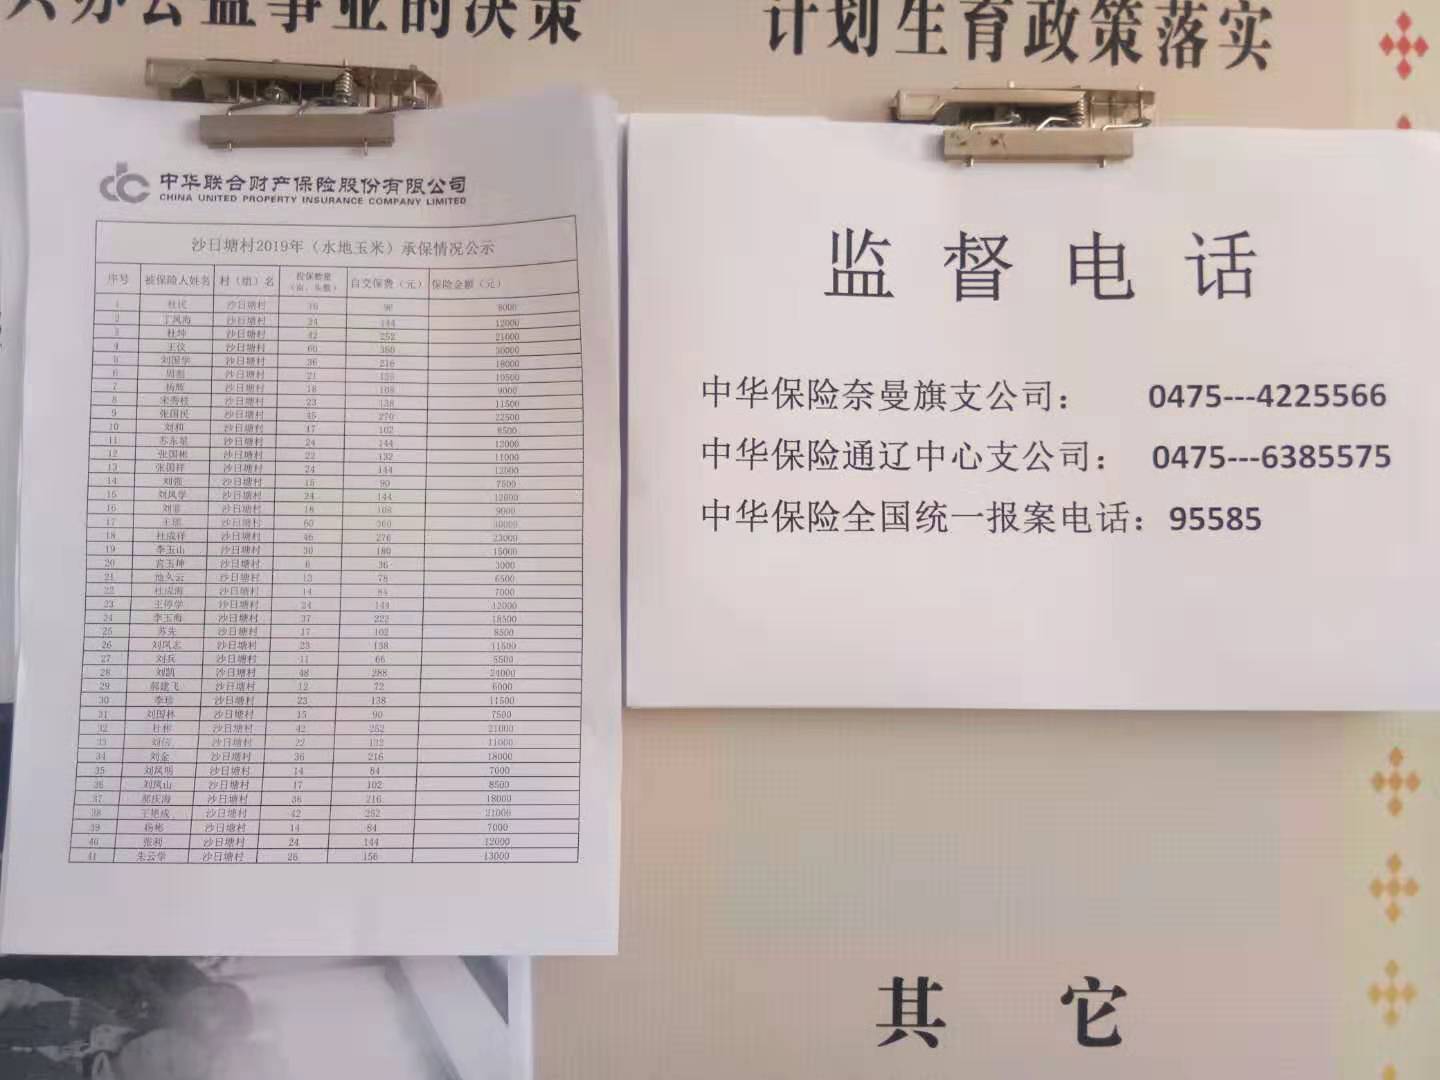 计划生育政策落实
中华联合财产保险股份有限公司
CHINA UNITED PROPERTY INSURANCE COMPANY LIMITED
沙日塘村2019年（水地玉米）承保情况公示
序号 被保险人姓名 村（组）名 投保数量（亩、头数） 自交保费（元） 保险金额（元）
1 杜民 沙日塘村 16 96 8000
2 丁凤海 沙日塘村 24 144 12000
3 杜坤 沙日塘村 42 252 21000
4 王仪 沙日塘村 60 360 30000
5 刘国学 沙日塘村 36 216 18000
6 沙日塘村 21 126 10500
7 杨辉 沙日塘村 18 108 9000
8 宋秀枝 沙日塘村 23 138 11500
9 张国民 沙日塘村 45 270 22500
10 刘和 沙日塘村 17 102 8500
11 苏东星 沙日塘村 24 144 12000
12 张国彬 沙日塘村 22 132 11000
13 张国祥 沙日塘村 24 144 12000
14 刘强 沙日塘村 15 90 7500
15 刘凤学 沙日塘村 24 144 12000
16 沙日塘村 18 108 9000
17 沙日塘村 60 360 30000
18 杜成祥 沙日塘村 46 276 23000
19 李玉山 沙日塘村 30 180 15000
20 宫玉坤 沙日塘村 6 36 3000
21 池久云 沙日塘村 13 78 6500
22 杜成海 沙日塘村 14 84 7000
23 王停学 沙日塘村 24 144 12000
24 李玉海 沙日塘村 37 222 18500
25 苏先 沙日塘村 17 102 8500
26 刘凤志 沙日塘村 23 138 11500
27 刘兵 沙日塘村 11 66 5500
28 刘凯 沙日塘村 48 288 24000
29 郝建飞 沙日塘村 12 72 6000
30 李珍 沙日塘村 23 138 11500
31 刘国林 沙日塘村 15 90 7500
32 杜彬 沙日塘村 42 252 21000
33 刘信 沙日塘村 22 132 11000
34 刘金 沙日塘村 36 216 18000
35 刘凤明 沙日塘村 14 84 7000
36 刘凤山 沙日塘村 17 102 8500
37 郝庆海 沙日塘村 36 216 18000
38 王艳成 沙日塘村 42 252 21000
39 杨彬 沙日塘村 14 84 7000
40 张利 沙日塘村 24 144 12000
41 朱云学 沙日塘村 26 156 13000
监督电话
中华保险奈曼旗支公司： 0475---4225566
中华保险通辽中心支公司： 0475---6385575
中华保险全国统一报案电话：95585
其它